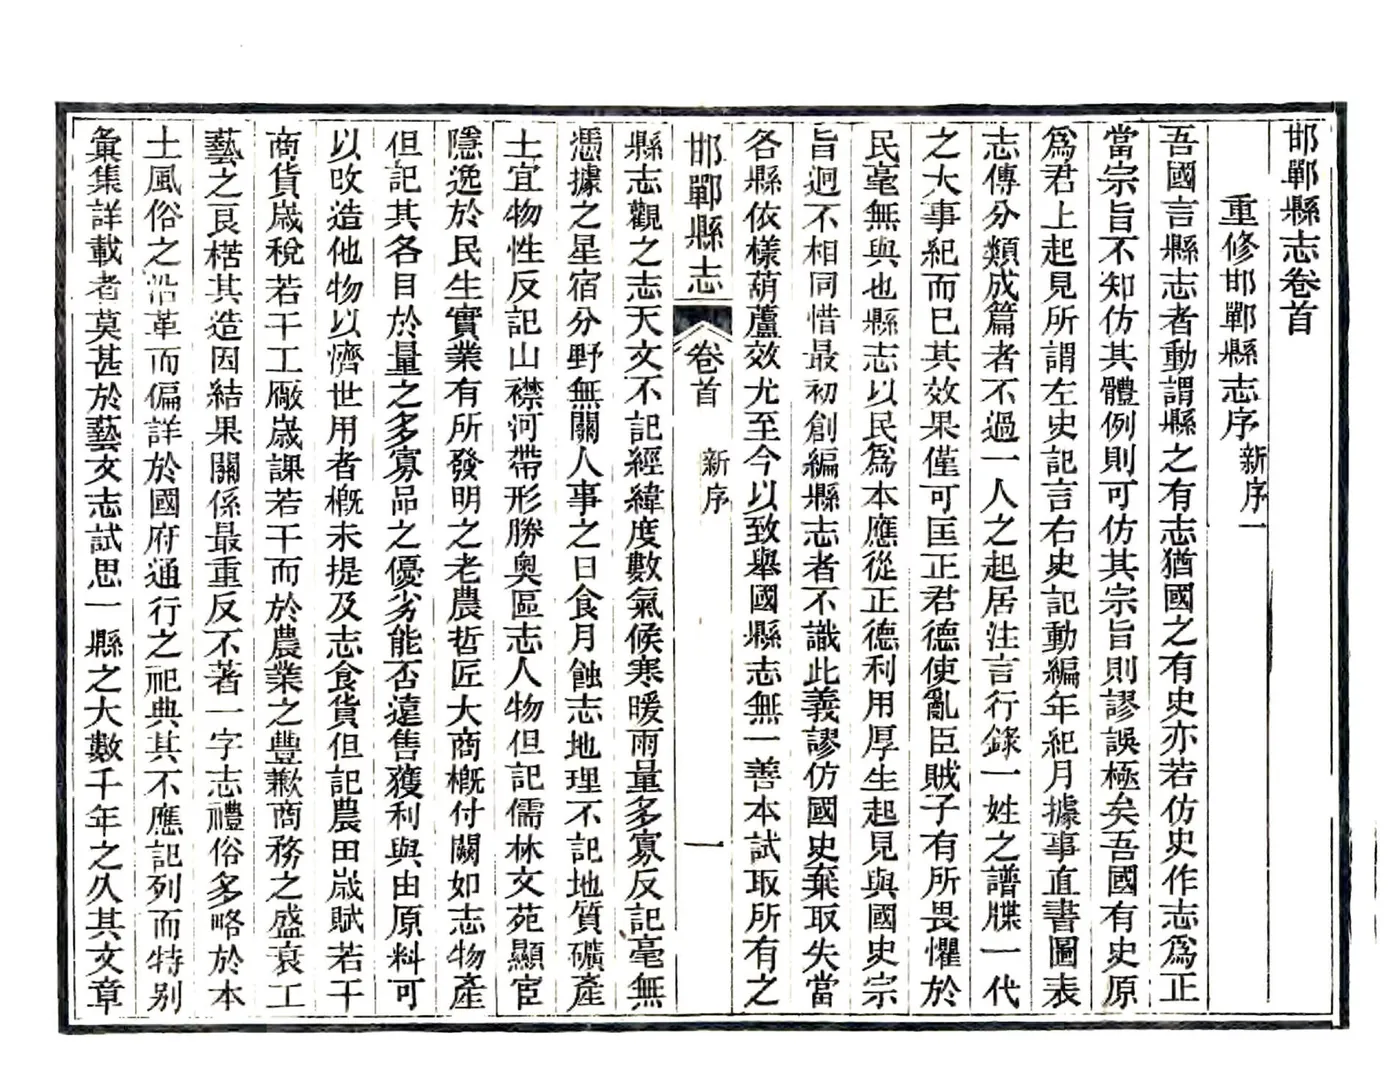 邯鄲縣志卷首
重修邯鄲縣志序 新序一
吾國言縣志者動謂縣之有志猶國之有史亦若仿史作志爲正
當宗旨不知仿其體例則可仿其宗旨則謬誤極矣吾國有史原
爲君上起見所謂左史記言右史記動編年紀月據事直書圖表
志傳分類成篇者不過一人之起居注言行錄一姓之譜牒一代
之大事紀而已其效果僅可匡正君德使亂臣賊子有所畏懼於
民毫無與也縣志以民爲本應從正德利用厚生起見與國史宗
旨迥不相同惜最初創編縣志者不識此義謬仿國史棄取失當
各縣依樣葫蘆效尤至今以致舉國縣志無一善本試取所有之
邯鄲縣志 卷首 新序 一
縣志觀之志天文不記經緯度數氣候寒暖雨量多寡反記毫無
憑據之星宿分野無關人事之日食月蝕志地理不記地質礦產
土宜物性反記山襟河帶形勝奧區志人物但記儒林文苑顯宦
隱逸於民生實業有所發明之老農哲匠大商槪付闕如志物產
但記其各目於量之多寡品之優劣能否遠售獲利與由原料可
以改造他物以濟世用者槪未提及志食貨但記農田歲賦若干
商貨歲稅若干工厰歲課若干而於農業之豐歉商務之盛衰工
藝之良楛其造因結果關係最重反不著一字志禮俗多略於本
土風俗之沿革而偏詳於國府通行之祀典其不應記列而特別
彙集詳載者莫甚於藝文志試思一縣之大數千年之久其文章